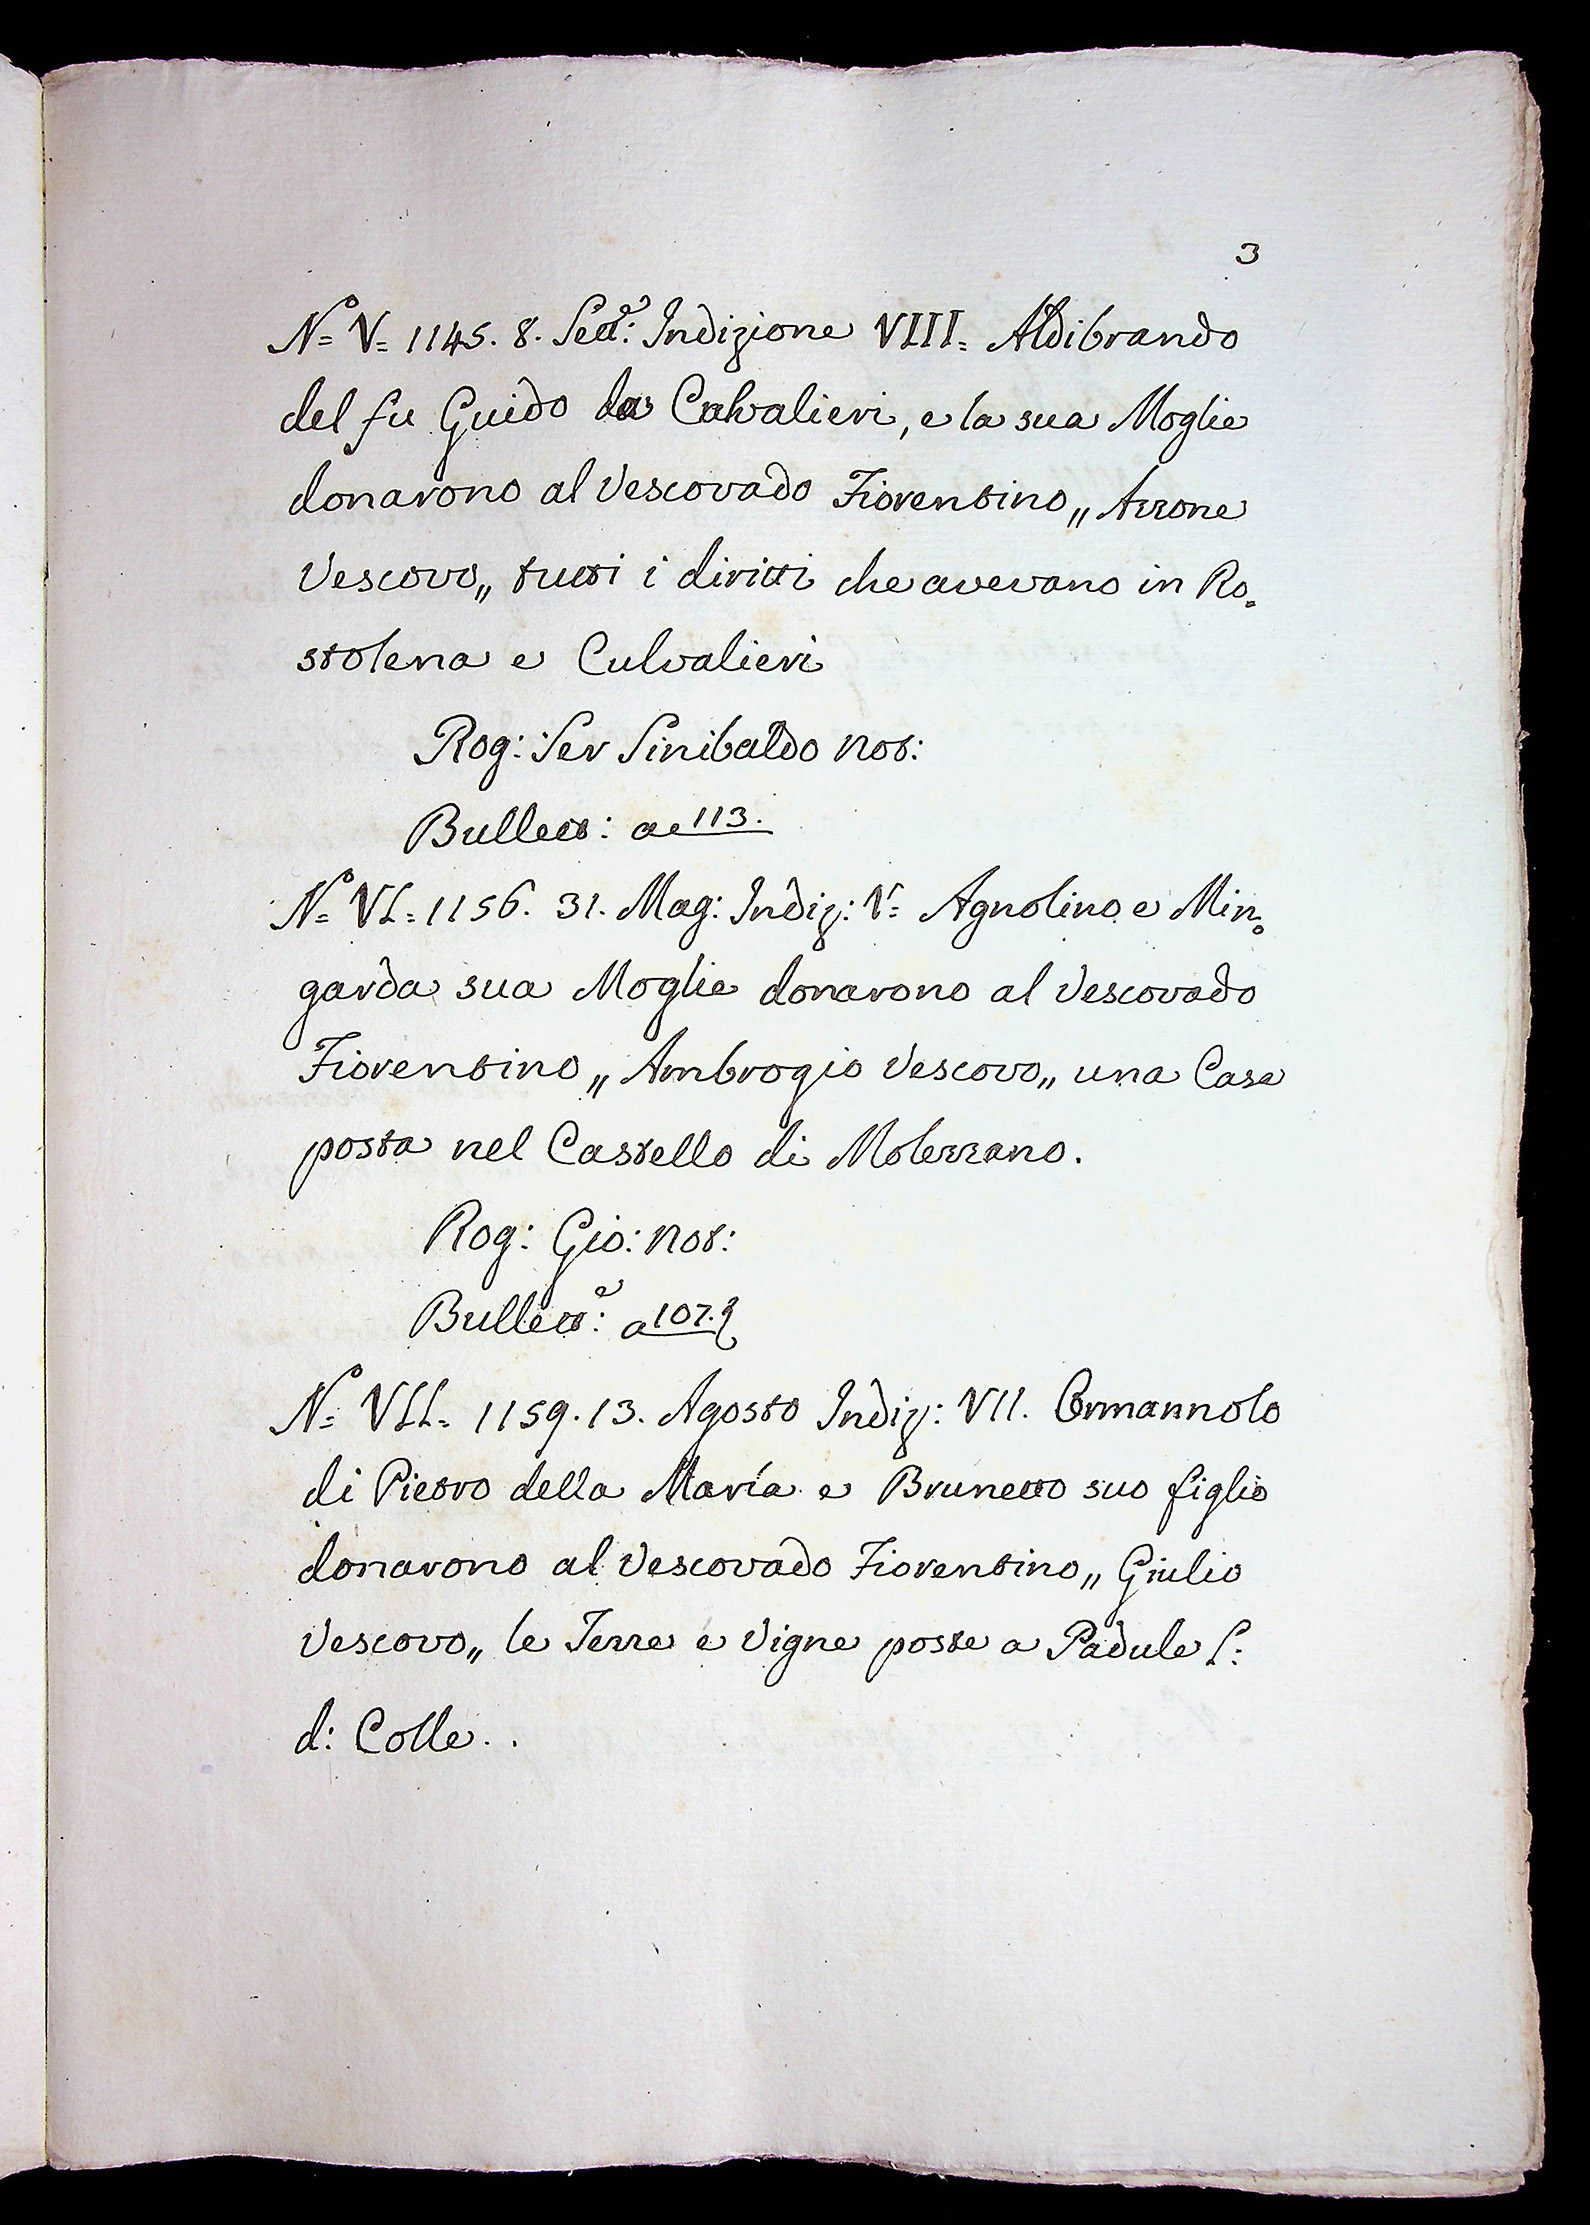 3
N.º V. 1145. 8. Sett.e: Indizione VIII. Aldibrando
del fu Guido da Calvalieri, e la sua Moglie
donarono al Vescovado Fiorentino „ Azzone
Vescovo „ tutti i diritti che avevano in Ro=
stolena e Culvalieri
Rog: Ser Sinibaldo Not:
Bullett: a 113.
N.º VI. 1156. 31. Mag: Indiz: V. Agnolino e Min=
garda sua Moglie donarono al Vescovado
Fiorentino „ Ambrogio Vescovo „ una Casa
posta nel Castello di Molezzano.
Rog: Gio: Not:
Bullett.e: a 107.
N.º VII. 1159. 13. Agosto Indiz: VII. Ormannolo
di Pietro della María e Brunetto suo figlio
donarono al Vescovado Fiorentino „ Giulio
Vescovo „ le Terre e Vigne poste a Padule S:
d: Colle..